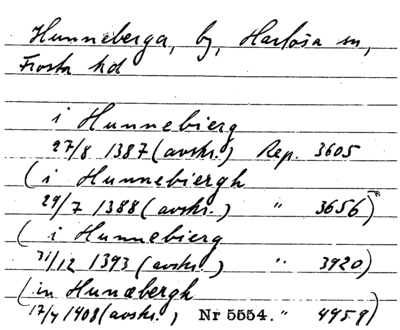 Hunneberga, by, Harlösa sn,
Frosta hd
i Hunnebierg
27/8 1387 (avskr.) Rep. 3605
(i Hunnebiergh
29/7 1388 (avskr.) " 3656)
(i Hunnebierg
31/12 1393 (avskr.) " 3920)
(in Hunæbergh
17/4 1408 (avskr.) Nr 5554. " 4959)